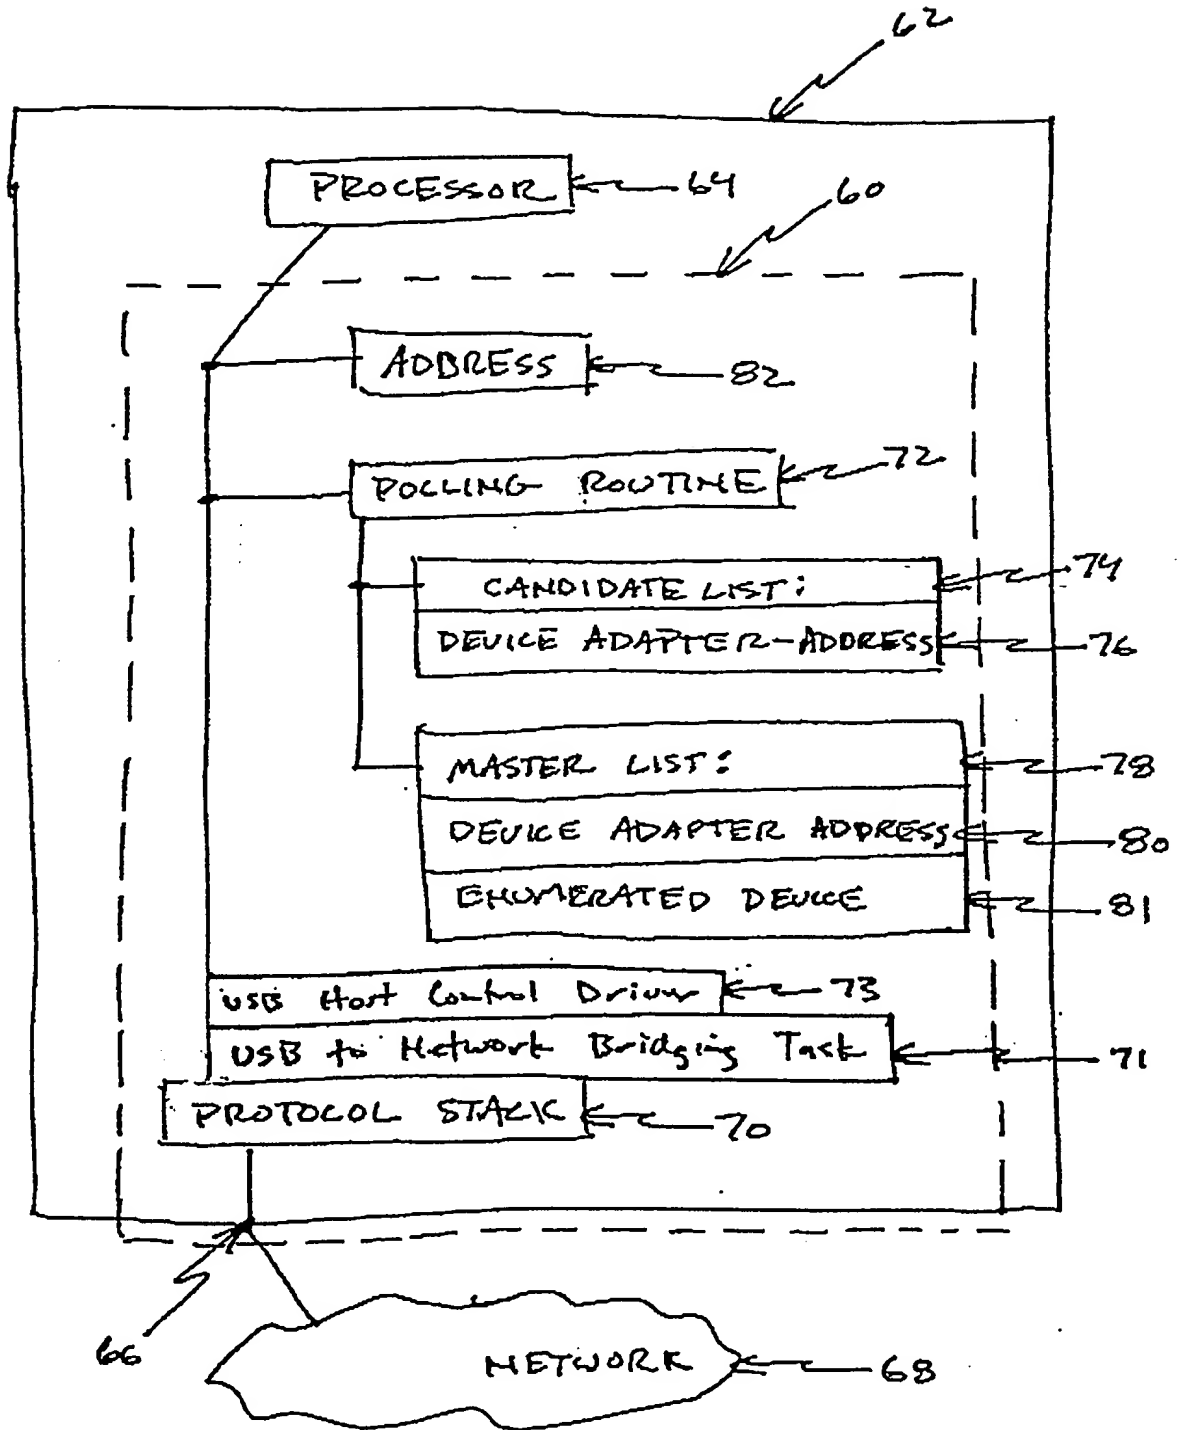 62
PROCESSOR 64
60
ADDRESS 82
POLLING ROUTINE 72
CANDIDATE LIST: 74
DEVICE ADAPTER-ADDRESS 76
MASTER LIST: 78
DEVICE ADAPTER ADDRESS 80
ENUMERATED DEVICE 81
USB Host Control Driver 73
USB to Network Bridging Task 71
PROTOCOL STACK 70
66
NETWORK 68